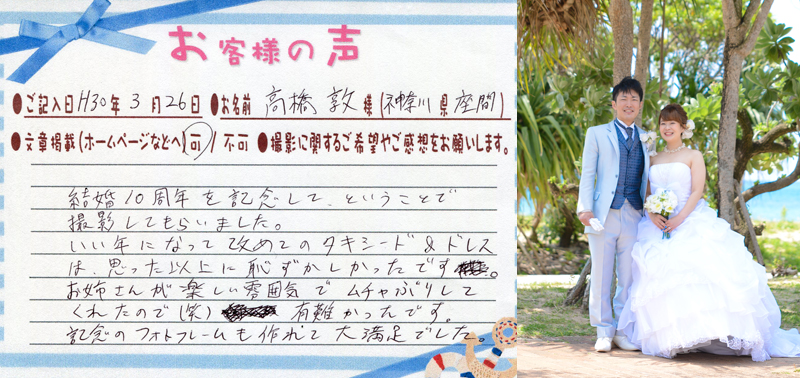 お客様の声
●ご記入日H30年3月26日 ●お名前 高橋敦様(神奈川県座間)
●文章掲載(ホームページなどへ)可/不可 ●撮影に関するご希望やご感想をお願いします。
結婚10周年を記念して、ということで
撮影してもらいました。
いい年になって改めてのタキシード&ドレス
は、思った以上に恥ずかしかったです。
お姉さんが楽しい雰囲気でムチャぶりして
くれたので(笑) 有難かったです。
記念のフォトフレームも作れて大満足でした。